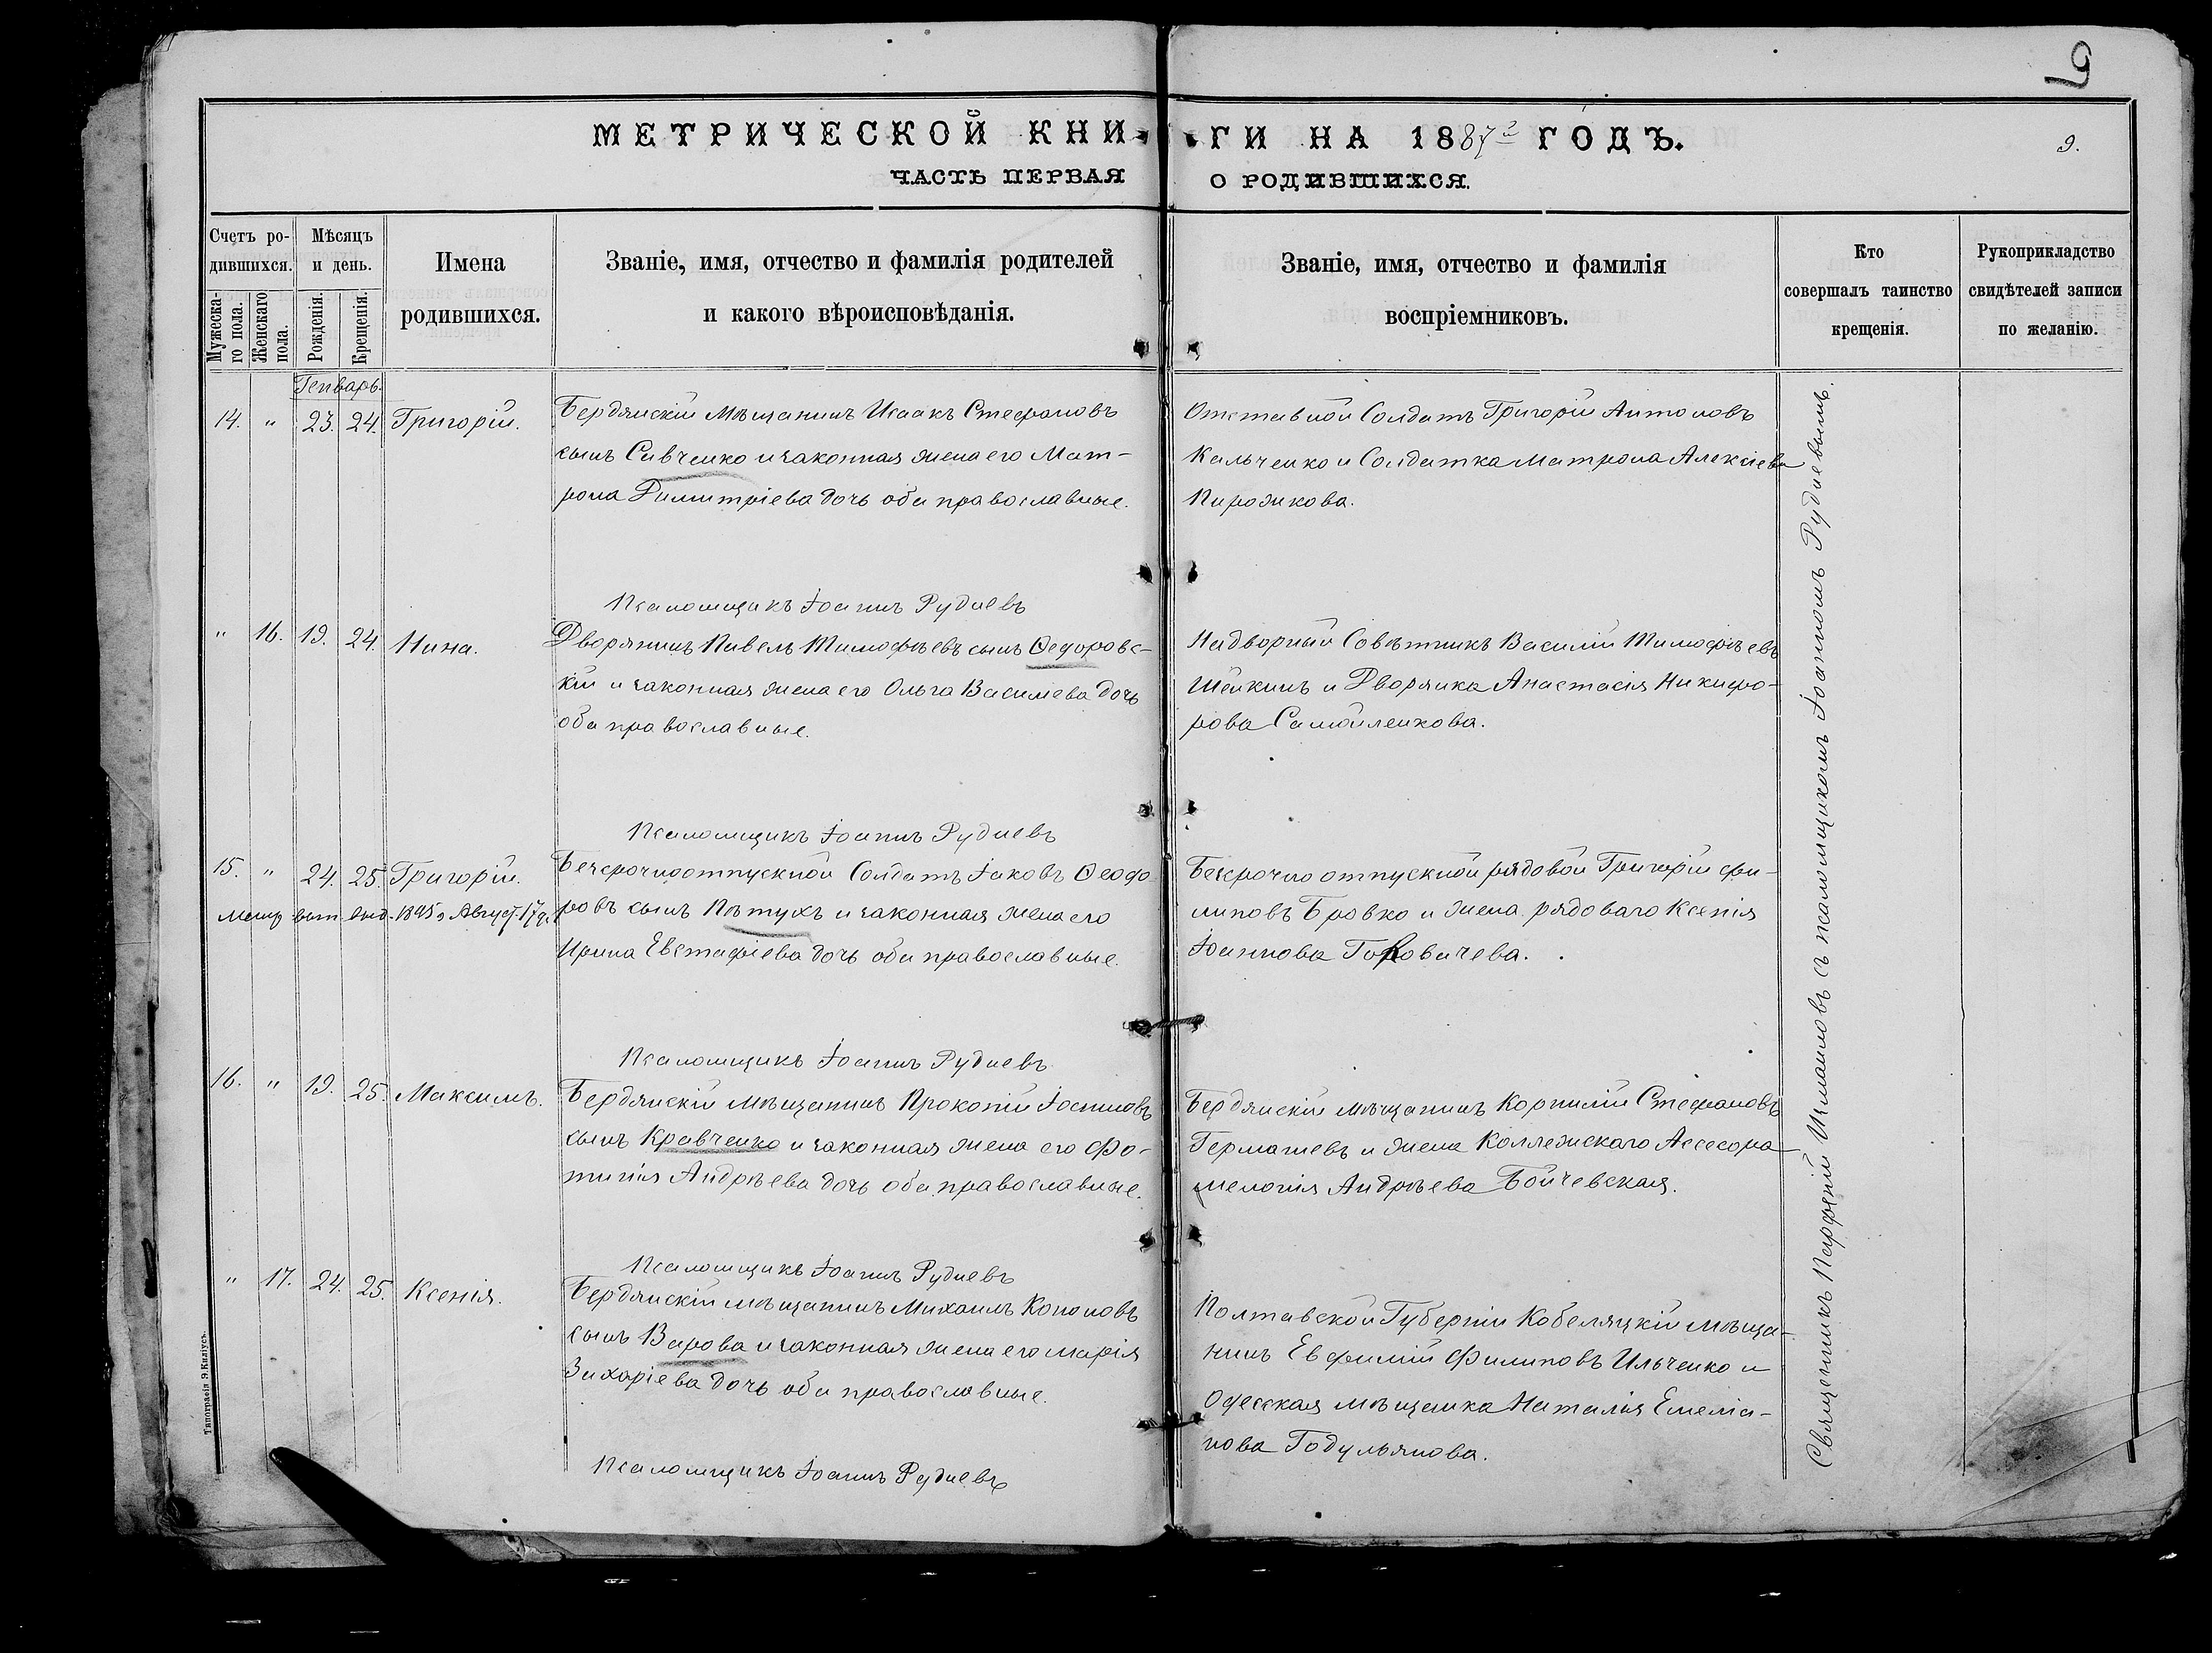 9
МЕТРИЧЕСКОЙ КНИ-
ГИ НА 1887й ГОДЪ.
9.
ЧАСТЬ ПЕРВАЯ
О РОДИВШИХСЯ.
Счетъ ро-
дившихся.
Мужеска-
го пола.
Женскаго
пола.
Мѣсяцъ
и день.
Рожденія.
Крещенія.
Имена
родившихся.
Званіе, имя, отчество и фамилія родителей
и какого вѣроисповѣданія.
Званіе, имя, отчество и фамилія
воспріемниковъ.
Кто
совершалъ таинство
крещенія.
Рукоприкладство
свидѣтелей записи
по желанію.
Генварь.
14. " 23. 24. Григорій.
Бердянскій Мѣщанинъ Исаакъ Стефановъ
сынъ Савченко и законная жена его Мат-
рона Димитріева дочь оба православные.
Отставной Солдатъ Григорій Антоновъ
Кальченко и Солдатка Матрона Алексіева
Пирожкова.
Псаломщикъ Іоаннъ Рудневъ
" 16. 19. 24. Нина.
Дворянинъ Павелъ Тимофѣевъ сынъ Ѳедоровс-
кій и законная жена его Ольга Васильева дочь
оба православные.
Надворный Совѣтникъ Василій Тимофѣевъ
Шейкинъ и Дворянка Анастасія Никифо-
рова Самойленкова.
Псаломщикъ Іоаннъ Рудневъ
15. " 24. 25. Григорій.
Метр выд. 1895 г Август. 17 д.
Безсрочноотпускной Солдатъ Іаковъ Ѳеодо-
ровъ сынъ Пѣтухъ и законная жена его
Ирина Евстафіева дочь оба православные.
Безсрочно отпускной рядовой Григорій Фи-
липовъ Бровко и жена рядоваго Ксенія
Іоаннова Головачева.
Псаломщикъ Іоаннъ Рудневъ
16. " 19. 25. Максимъ.
Бердянскій мѣщанинъ Прокопій Іоанновъ
сынъ Кравченко и законная жена его Фо-
тинія Андрѣева дочь оба православные.
Бердянскій мѣщанинъ Корнилій Стефановъ
Гермашевъ и жена Коллежскаго Ассесора
Меланія Андрѣева Бойчевская.
Псаломщикъ Іоаннъ Рудневъ
" 17. 24. 25. Ксенія.
Бердянскій мѣщанинъ Михаилъ Кононовъ
сынъ Варова и законная жена его Марія
Захаріева дочь оба православные.
Полтавской Губерніи Кобеляцкій мѣща-
нинъ Евфимій Филиповъ Ильченко и
Одесская мѣщанка Наталія Емелiа-
нова Годульянова.
Псаломщикъ Іоаннъ Рудневъ
Священникъ Парфеній Измаиловъ съ псаломщикомъ Іоанномъ Рудневымъ.
Типографія Э. Киліусъ.